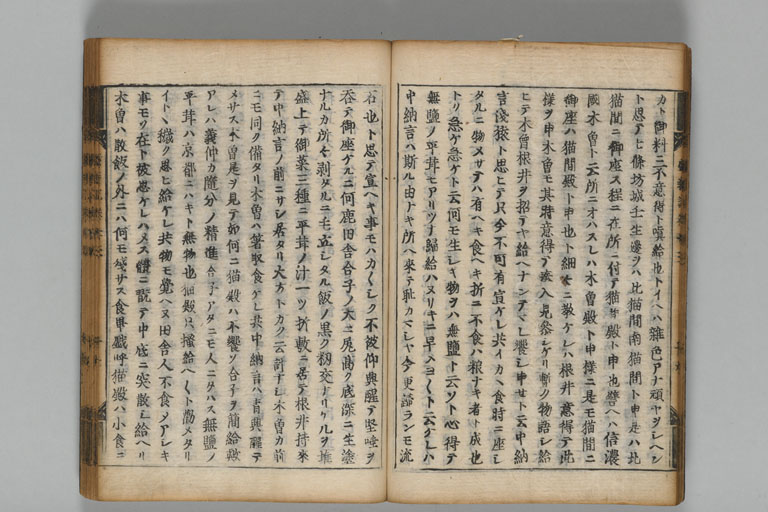 カト御料ニ不意得ト嗔給也トイヘハ雑色アナ頑ヤヲレヘシ
ト思テ七條坊城壬生邊ヲハ北猫間南猫間ト申是ハ北
猫間ニ御座ス程ニ在所ニ付テ猫間殿ト申也譬ヘハ信濃
國木曽ト云所ニオハスレハ木曽殿ト申樣ニ是モ猫間ニ
御座ハ猫間殿ト申也ト細々ニ教ケレハ根井意得テ此
樣ヲ申木曽モ其時意得テ奉入見参シケリ暫ク物語シ給
ヒテ木曽根井ヲ招テヤ給ヘナンテマレ饗シ申セト云中納
言浅猿ト思ヒテ只今不可有宣ケレ共イカヽ食時ニ座シ
タルニ物メサテハ有ヘキ食ヘキ折ニ不食ハ粮ナキ者ト成也
トリ急ケ急ケト云何モ生シキ物ヲハ無塩ト云ソト心得テ
無塩ノ平茸モアリツナ歸給ハヌサキニ早メヨ〱ト云ケレハ
中納言ハ斯ル由ナキ所ヘ来テ恥カマシヤ今更歸ランモ流
石也ト思テ宣ヘキ事モハカ〱シク不被仰興醒テ堅唾ヲ
呑テ御座ケルニ何鹿田舎合子ノ大ニ尻高ク底深ニ生塗
ナルカ所々剥タルニ毛立シタル飯ノ黒ク籾交ナリケルヲ堆
盛上テ御菜三種ニ平茸ノ汁一ツ折敷ニ居テ根井持来
テ中納言ノ前ニサシ居タリ大方トカク云計ナシ木曽カ前
ニモ同ク備タリ木曽ハ箸取食ケレ共中納言ハ青興醒テ
メサス木曽是ヲ見テ如何ニ猫殿ハ不饗ソ合子ヲ簡給歟
アレハ義仲カ隨分ノ精進合子アタニモ人ニタハス無塩ノ
平茸ハ京都ニハキト無物也猫殿只掻給ヘ〱ト勸メタリ
イトヽ穢ク思ヒ給ケレ共物モ覚ヘヌ田舎人不食メアシキ
事モソ在ト被思ケレハメス體ニ翫テ中底ニ突散シ給ヘリ
木曽ハ散飯ノ外ニハ何モ残サス食畢戯呼猫殿ハ小食ニ